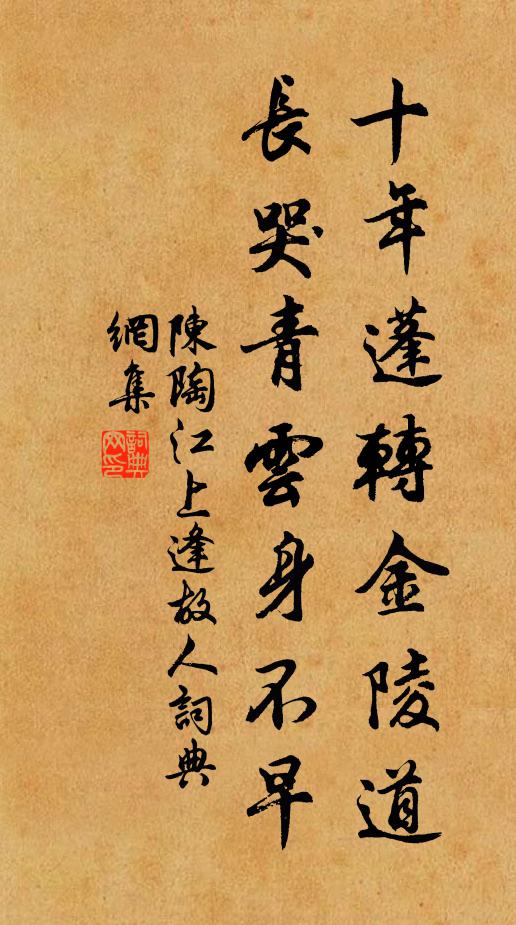 十年蓬轉金陵道
長哭青雲身不早
陳陶江上逢故人詞典
網集
詞典网印